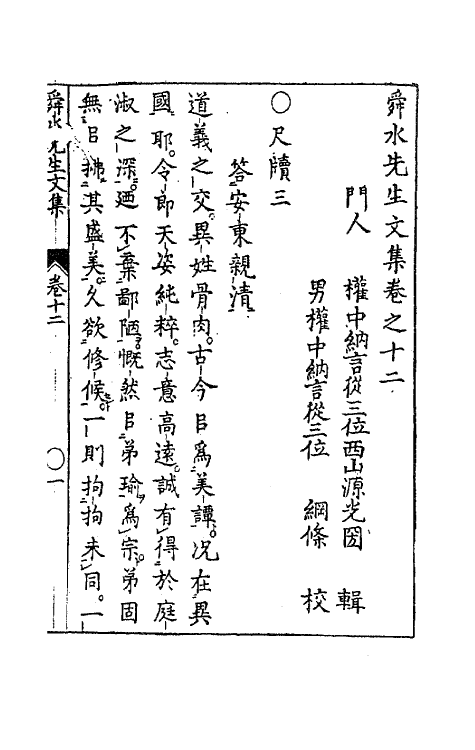 舜水先生文集卷之十二
門人 權中納言從三位西山源光圀 輯
男權中納言從三位 綱條 校
○尺牘三
答安東親清
道義之交。異姓骨肉。古今㠯爲美譚。况在異
國耶。令郎天姿純粹。志意高遠。誠有得於庭
淑之深。廼不棄鄙陋。慨然㠯弟瑜爲宗。弟固
無㠯拂其盛美。久欲修候。一則拘拘未同。一
舜水先生文集
卷十二
○一